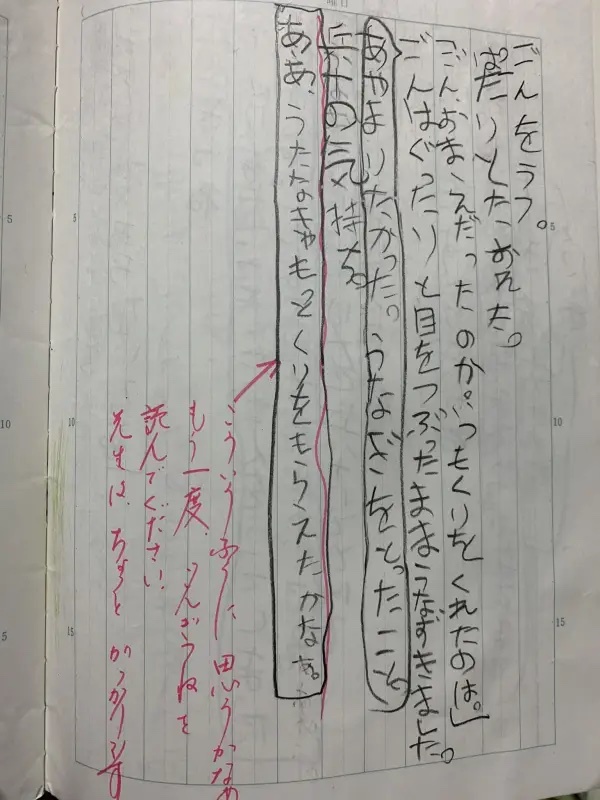 ごんをうつ。
ばたりとたおれた。
ごん、おまえだったのか。いつもくりをくれたのは。」
ごんはぐったりと目をつぶったままうなずきました。
あやまりたかった。うなぎをとったこと。
兵十の気持ち。
ああ、うたなきゃもっとくりをもらえたかなぁ。
こういうふうに思うかなぁ
もう一度、ごんぎつねを
読んでください
先生は、ちょっとがっかりです
5
10
15
5
10
15
5
10
5